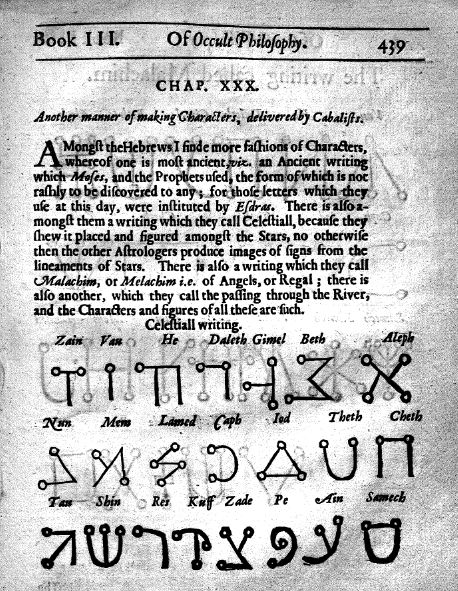 Book III. Of Occult Philosophy. 439
CHAP. XXX.
Another manner of making Characters, delivered by Cabalists.
AMongſt theHebrews I finde more faſhions of Characters,
whereof one is moſt ancient, viz. an Ancient writing
which Moſes, and the Prophets uſed, the form of which is not
raſhly to be diſcovered to any; for thoſe letters which they
uſe at this day, were inſtituted by Eſdras. There is alſo a-
mongſt them a writing which they call Celeſtiall, becauſe they
ſhew it placed and figured amongſt the Stars, no otherwiſe
then the other Aſtrologers produce images of ſigns from the
lineaments of Stars. There is alſo a writing which they call
Malachim, or Melachim i.e. of Angels, or Regal; there is
alſo another, which they call the paſſing through the River,
and the Characters and figures of all theſe are ſuch.
Celeſtiall writing.
Zain Vau He Daleth Gimel Beth Aleph
Nun Mem Lamed Caph Iod Theth Cheth
Tau Shin Res Kuff Zade Pe Ain Samech